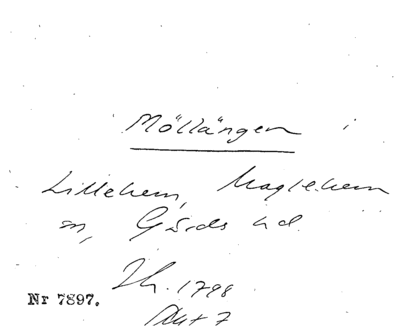 Möllängen i
Lillehem, Maglehem
sn, Gärds hd.
Sk. 1798
Akt 7
Nr 7897.